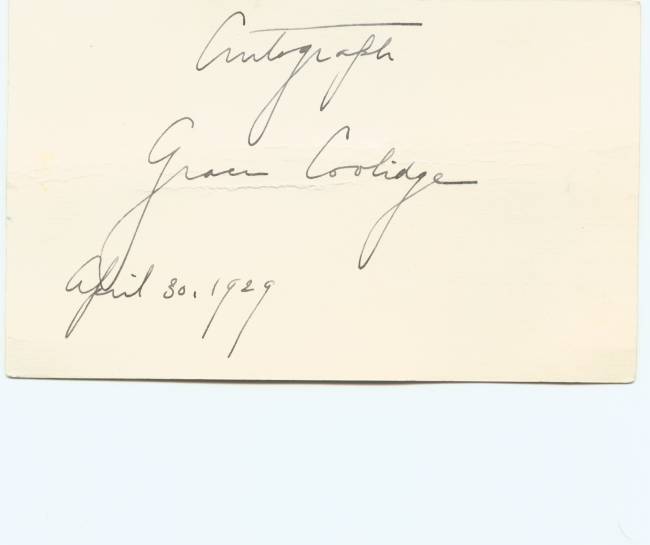 Autograph
Grace Coolidge
April 30, 1929